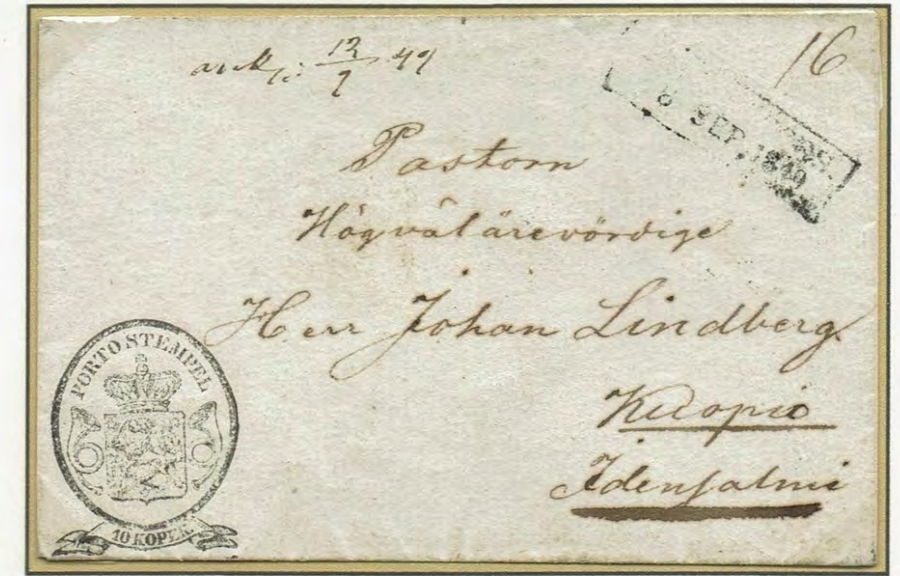 ank: 12/9 49
16
8 SEP. 1849
Pastorn
Högvälärevördige
Herr Johan Lindberg
Kuopio
Idensalmi
PORTO STEMPEL
10 KOPEK.